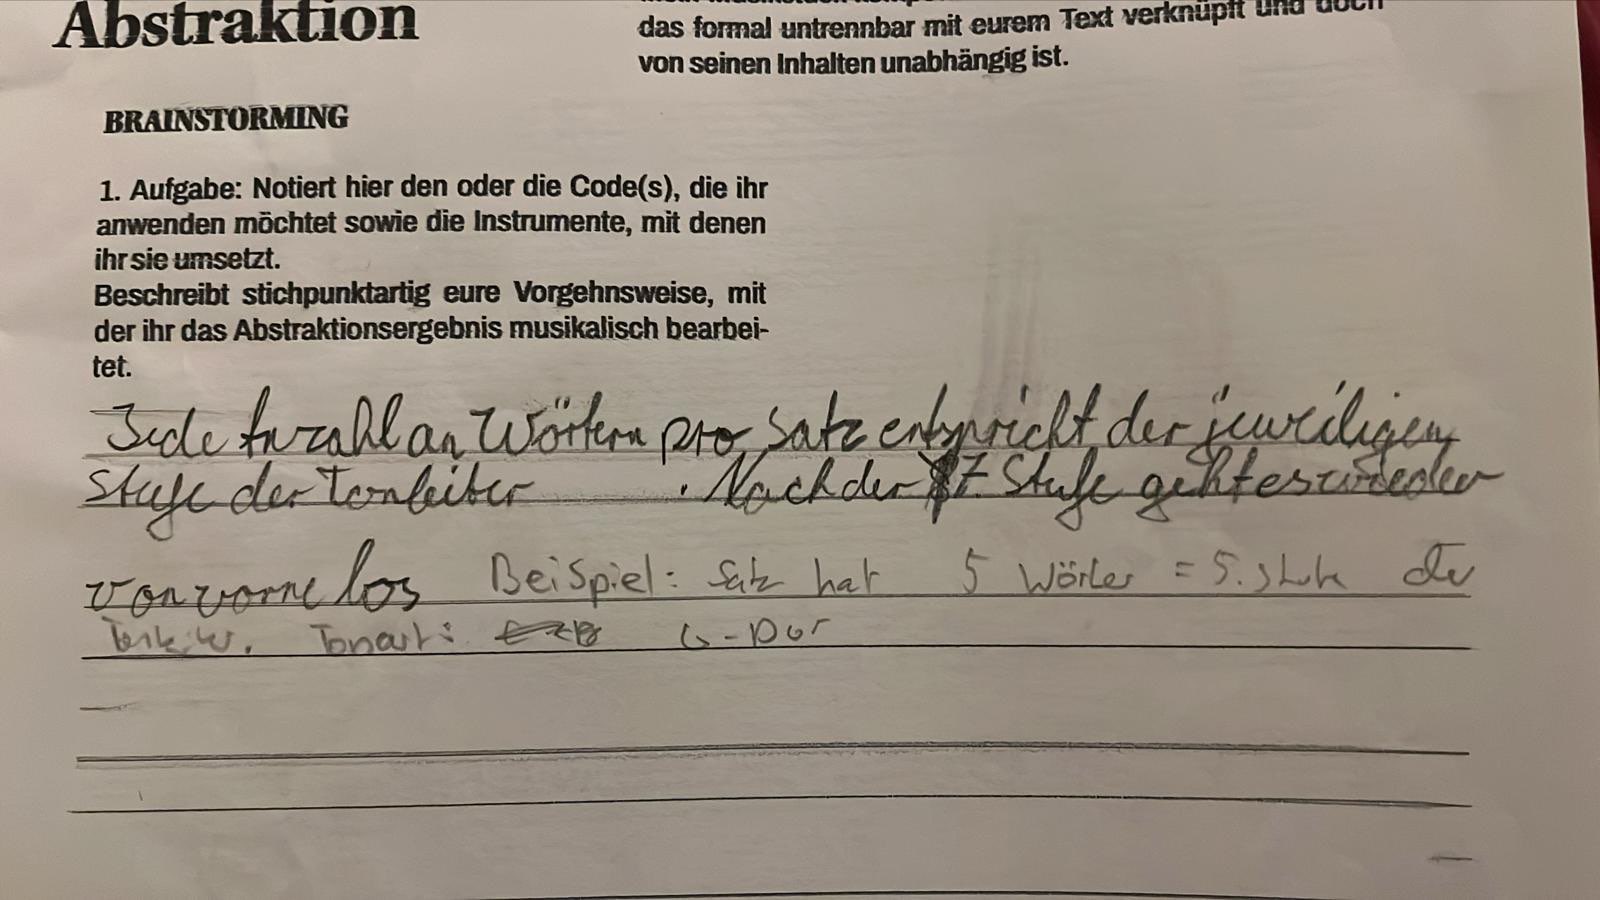 Abstraktion
das formal untrennbar mit eurem Text verknüpft und doch
von seinen Inhalten unabhängig ist.
BRAINSTORMING
1. Aufgabe: Notiert hier den oder die Code(s), die ihr
anwenden möchtet sowie die Instrumente, mit denen
ihr sie umsetzt.
Beschreibt stichpunktartig eure Vorgehnsweise, mit
der ihr das Abstraktionsergebnis musikalisch bearbei-
tet.
Jede Anzahl an Wörtern pro Satz entspricht der jeweiligen
Stufe der Tonleiter . Nach der 7. Stufe geht es wieder
von vorne los Beispiel: Satz hat 5 Wörter = 5. Stufe der
Tonleiter. Tonart: G-Dur